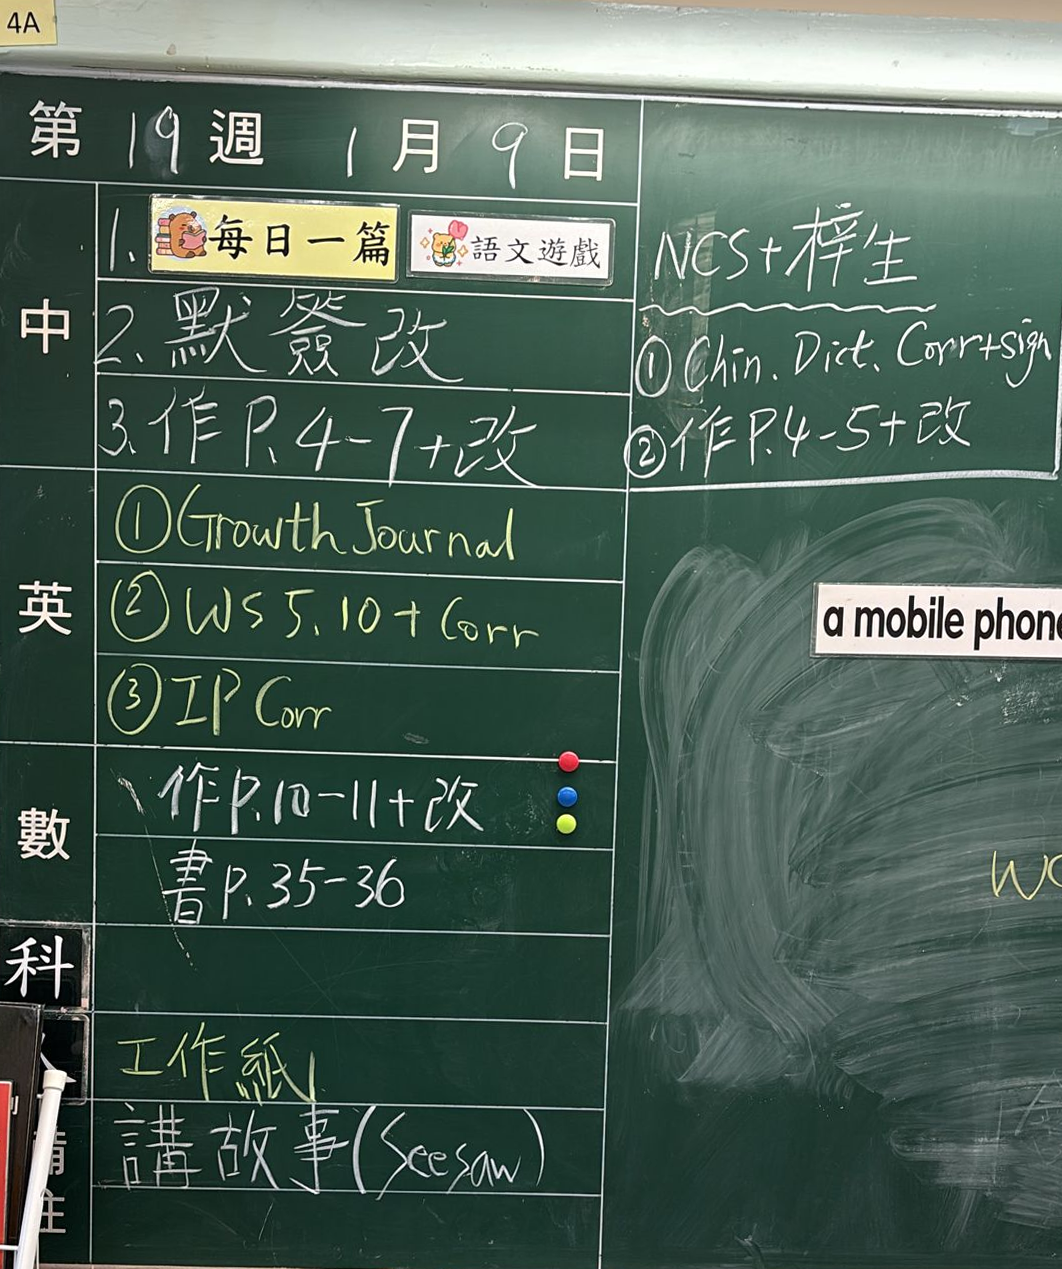 4A
第 19 週 1 月 9 日
中
1. 每日一篇 語文遊戲
2. 默簽改
3. 作P.4-7+改
英
① Growth Journal
② WS 5.10 + Corr
③ IP Corr
數
作P.10-11+改
書P.35-36
科
人
工作紙
備註
講故事(Seesaw)
NCS+梓生
① Chin. Dict. Corr+sign
② 作P.4-5+改
a mobile phone